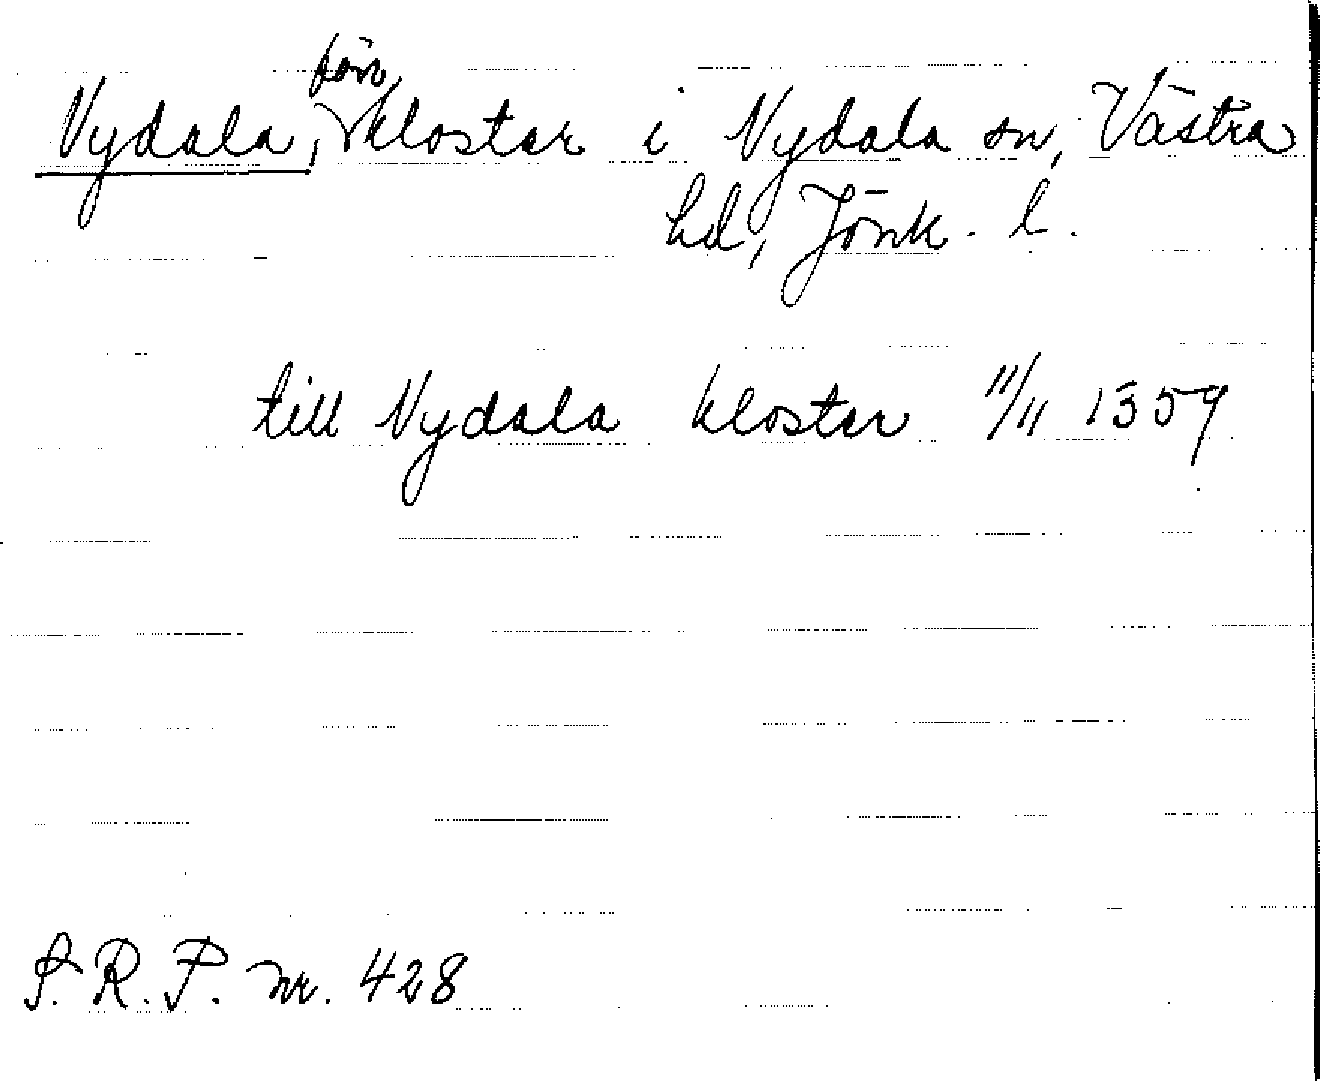 Nydala, förv. kloster i Nydala sn, Västra
hd, Jönk. l.
till Nydala kloster 11/11 1359
S.R.P. nr. 428